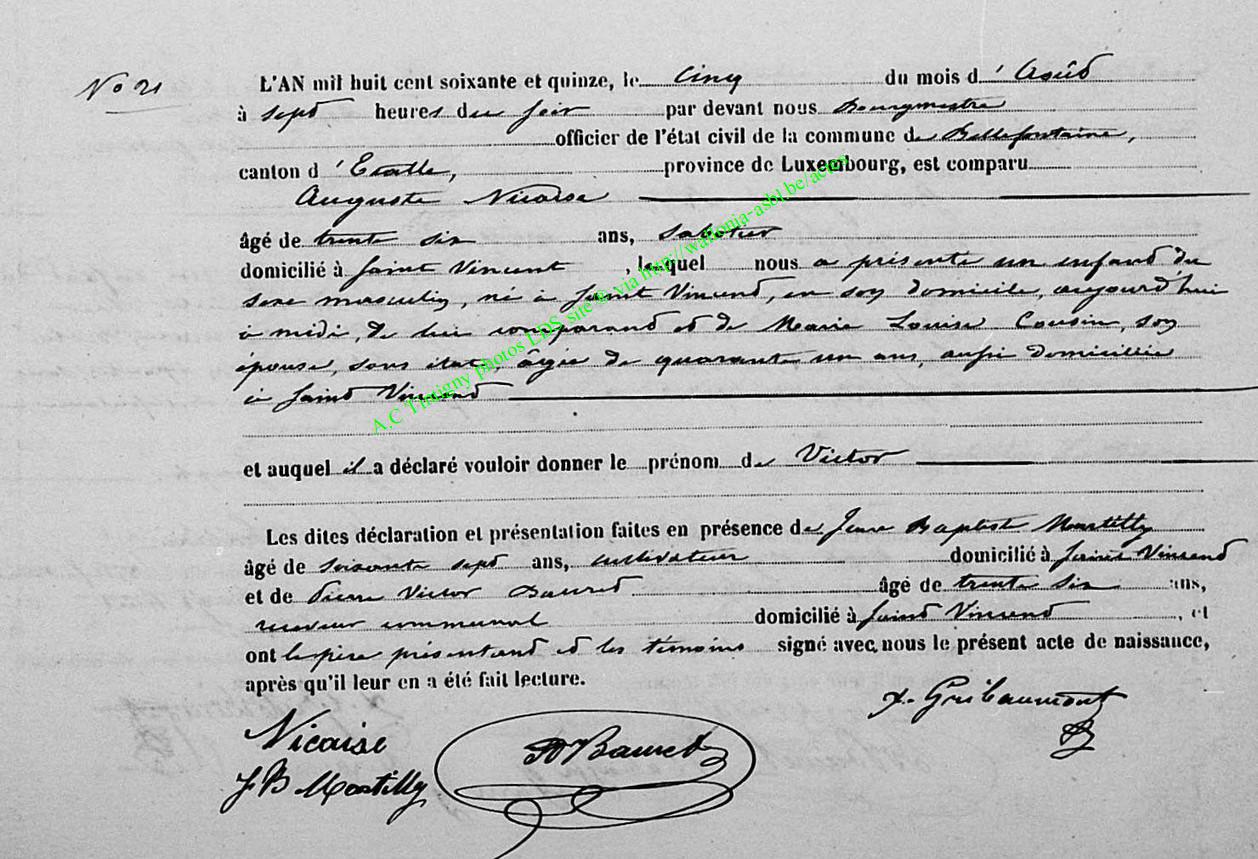 No 21
L'AN mil huit cent soixante et quinze, le cinq du mois d' Août
à sept heures du soir par devant nous Bourgmestre
officier de l'état civil de la commune de Bellefontaine,
canton d 'Etalle, province de Luxembourg, est comparu
Auguste Nicaise
âgé de trente six ans, sabotier
domicilié à Saint Vincent, lequel nous a présenté un enfant du
sexe masculin, né à Saint Vincent, en son domicile, aujourd'hui
à midi, de lui comparant et de Marie Louise Cousin, son
épouse, sans état, âgée de quarant un ans, aussi domiciliée
à Saint Vincent
et auquel il a déclaré vouloir donner le prénom de Victor
Les dites déclaration et présentation faites en présence de Jean Baptist
âgé de soixante sept ans, cultivateur domicilié à Saint Vincent
et de Pierre Victor âgé de trente six ans,
receveur communal domicilié à Saint Vincent, et
ont le père présentant et les témoins signé avec nous le présent acte de naissance,
après qu'il leur en a été fait lecture.
Nicaise
J B Mortilly
A.C Tintigny photos LDS, site © via http://wallonia-asbl.be/actes